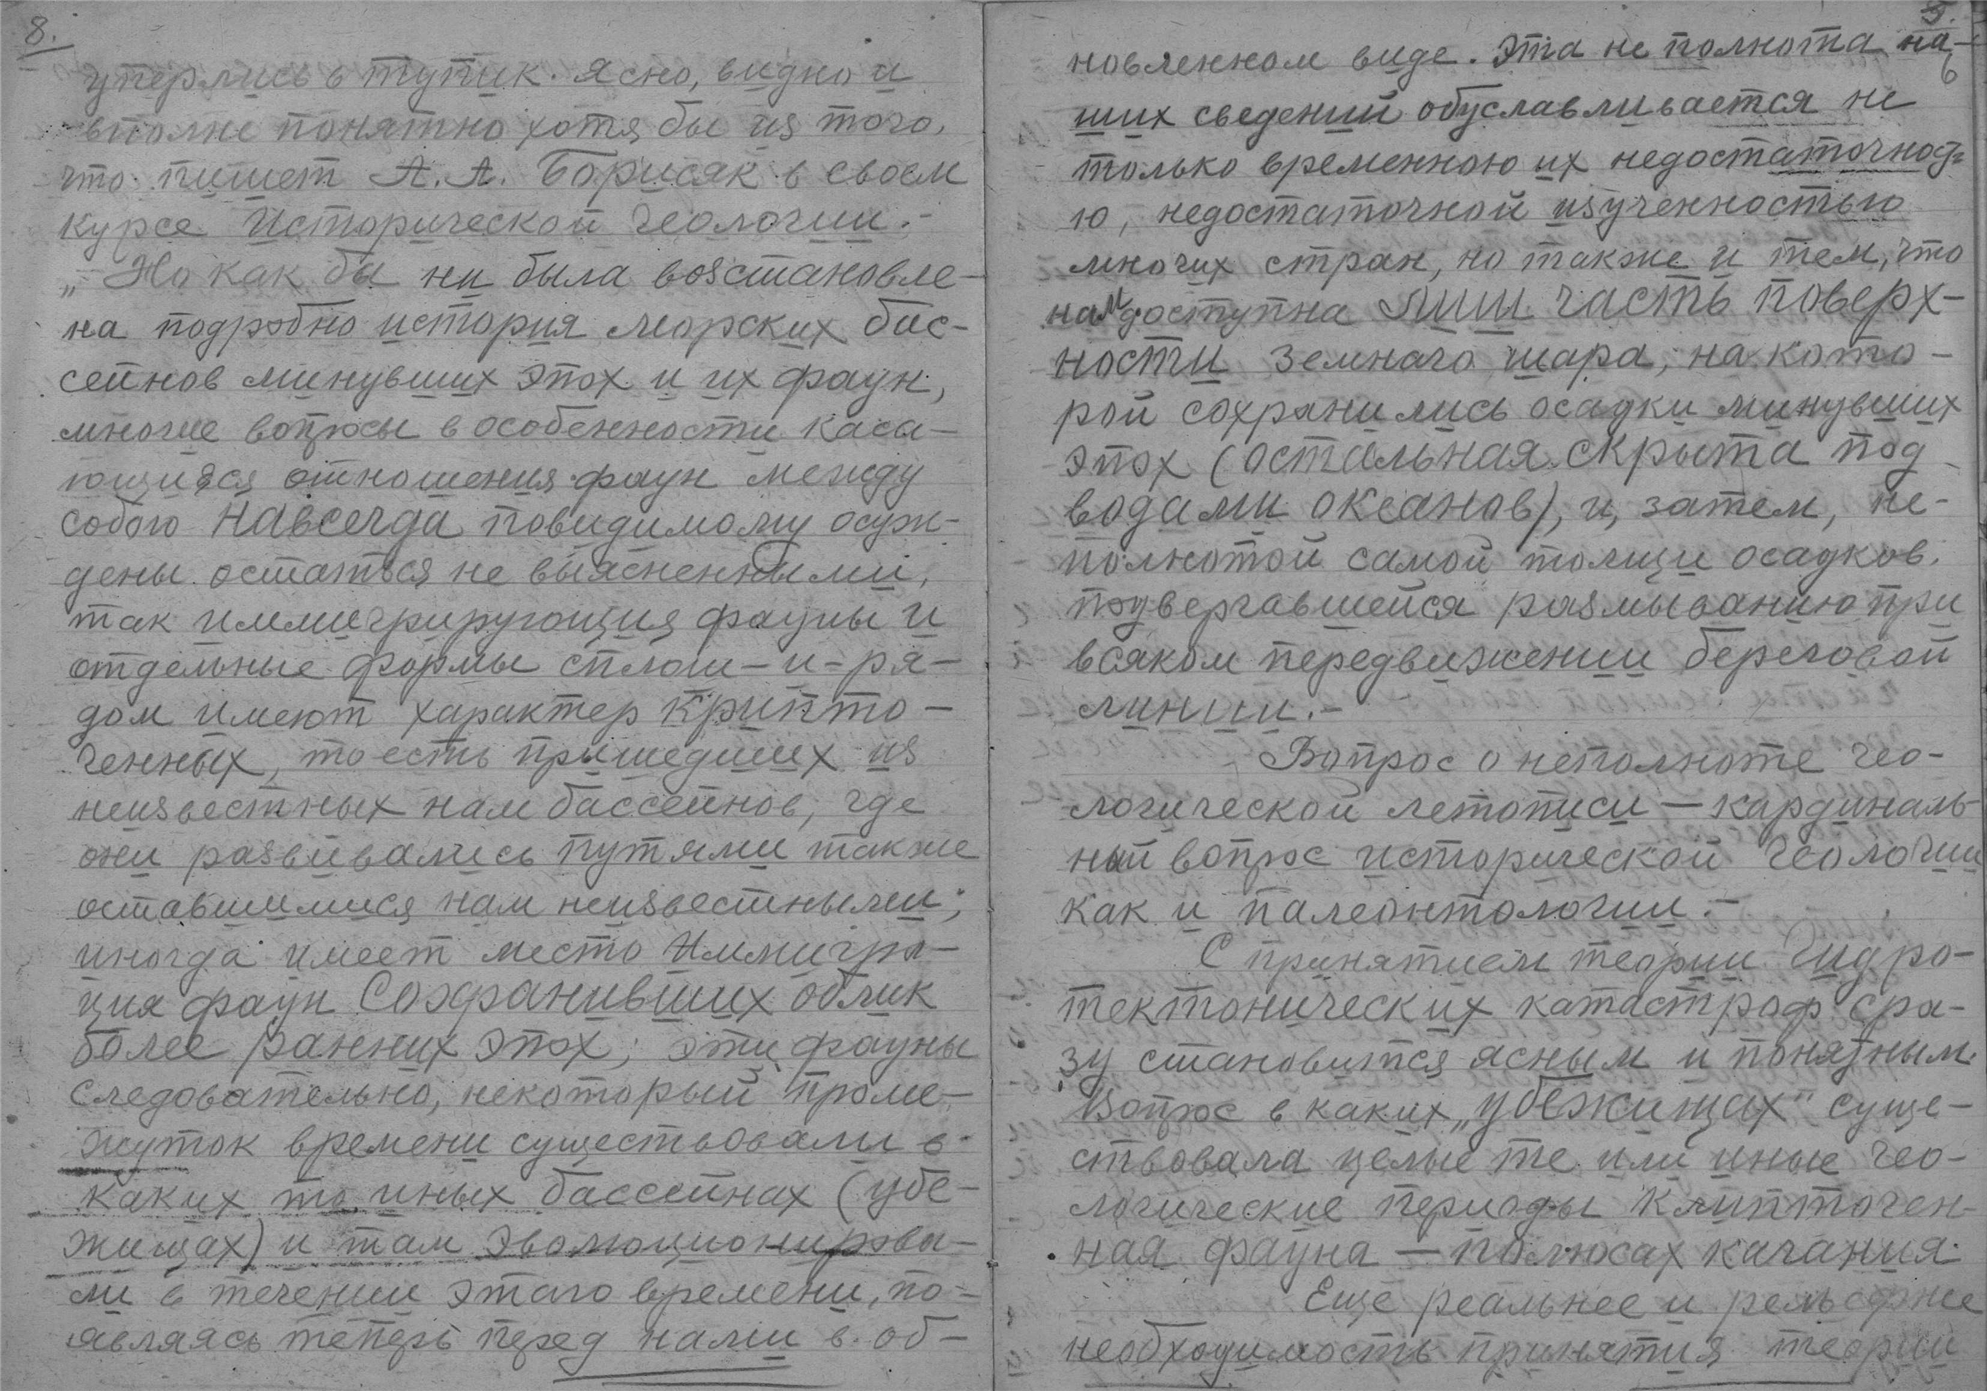 8.
уперлись в тупик. Ясно, видно и
вполне понятно хотя бы из того,
что пишет А. А. Борисяк в своем
курсе Исторической Геологии.-
„Но как бы ни была возстановле-
на подробно история морских бас-
сейнов минувших эпох и их фаун,
многие вопросы в особенности каса-
ющияся отношения фаун между
собою навсегда повидимому осуж-
дены остаться не выясненными,
так иммигрирующия фауны и
отдельные формы сплош-и-ря-
дом имеют характер крипто-
генных, то есть пришедших из
неизвестных нам бассейнов, где
они развивались путями также
оставшимися нам неизвестными;
иногда имеет место иммигра-
ция фаун сохранивших облик
более ранних эпох; эти фауны
следовательно, некоторый проме-
жуток времени существовали в
каких то иных бассейнах (убе-
жищах) и там эволюционирова-
ли в течении этого времени, по-
являясь теперь перед нами в об-
новленном виде. Эта не полнота на-
ших сведений обуславливается не
только временною их недостаточност-
ю, недостаточной изученностью
многих стран, но также и тем, что
нам доступна лиш часть поверх-
ности земнаго шара, на кото-
рой сохранились осадки минувших
эпох (остальная скрыта под
водами океанов), и, затем, не-
полнотой самой толщи осадков.
подвергавшейся размыванию при
всяком передвижении береговой
линии.-
Вопрос о неполноте гео-
логической летописи — кардиналь-
ный вопрос исторической геологии
как и палеонтологии.-
С принятием теории Гидро-
тектонических катастроф сра-
зу становится ясным и понятным
вопрос в каких „убежищах" суще-
ствовала целые те или иные гео-
логические периоды Криптоген-
ная фауна — полюсах качания.
Еще реальнее и рельефнее
необходимость принятия теории